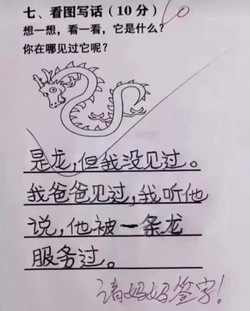 七、看图写话(10分) 10
想一想，看一看，它是什么？
你在哪见过它呢？
是龙，但我没见过。
我爸爸见过，我听他
说，他被一条龙
服务过。
请妈妈签字！